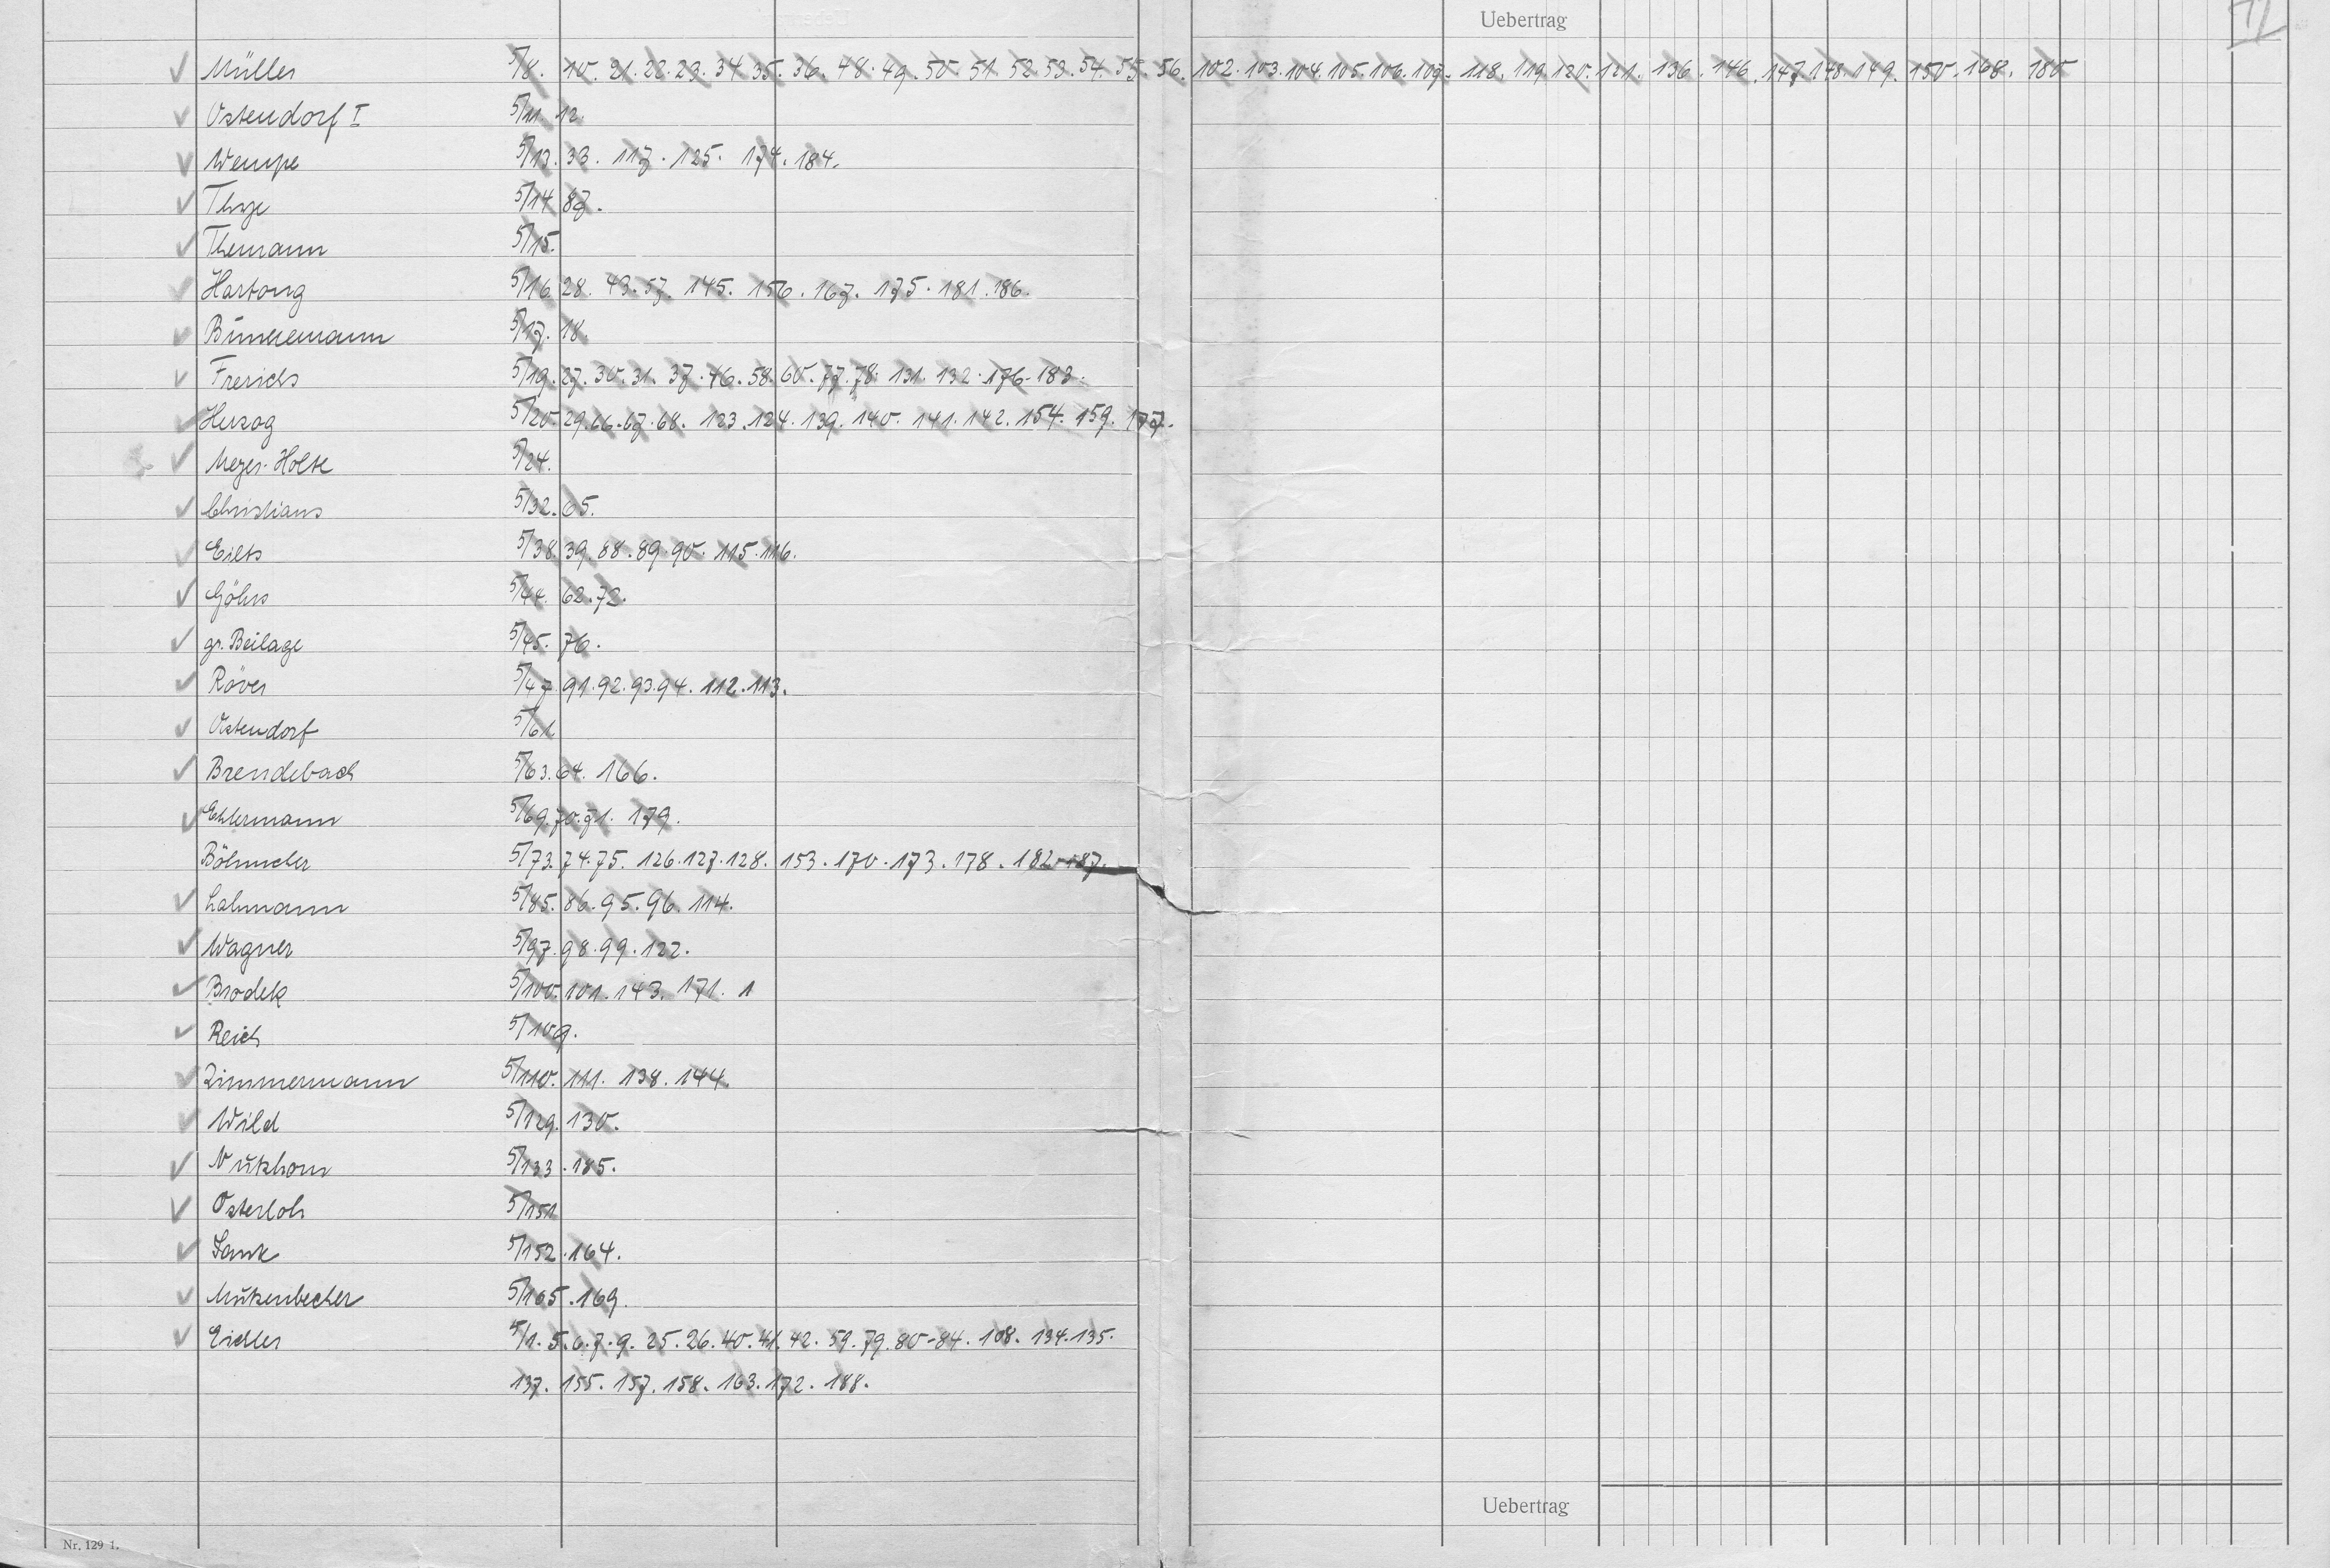 Uebertrag
VI
Müller 5/8. 10. 21. 22. 23. 34. 35. 36. 48. 49. 50. 51. 52. 53. 54. 55. 56. 102. 103. 104. 105. 106. 107. 118. 119. 120. 121. 136. 146. 147. 148. 149. 150. 168. 180
Ostendorf I 5/11. 12.
Wempe 5/13. 33. 117. 125. 174. 184.
Thye 5/14. 87.
Themann 5/15.
Hartong 5/16. 28. 43. 57. 145. 156. 167. 175. 181. 186.
Bünnemann 5/17. 18.
Frerichs 5/19. 27. 30. 31. 37. 46. 58. 60. 77. 78. 131. 132. 176. 183.
Herzog 5/20. 29. 66. 67. 68. 123. 124. 139. 140. 141. 142. 154. 159. 177.
Meyer-Holte 5/24.
Christians 5/32. 65.
Eilts 5/38. 39. 88. 89. 90. 115. 116.
Göhrs 5/44. 62. 72.
gr. Beilage 5/45. 76.
Röver 5/47. 91. 92. 93. 94. 112. 113.
Ostendorf 5/61
Brendebach 5/63. 64. 166.
Ehlermann 5/69. 70. 71. 179.
Böhmcker 5/73. 74. 75. 126. 127. 128. 153. 170. 173. 178. 182. 187.
Lahmann 5/85. 86. 95. 96. 114.
Wagner 5/97. 98. 99. 122.
Brodek 5/100. 101. 143. 171. 1
Reich 5/109.
Zimmermann 5/110. 111. 138. 144.
Wild 5/129. 130.
Nutzhorn 5/133. 185.
Osterloh 5/151
5/152. 164.
Mutzenbecher 5/165. 169.
Eichler 5/1. 5. 6. 7. 9. 25. 26. 40. 41. 42. 59. 79. 80-84. 108. 134. 135.
137. 155. 157. 158. 163. 172. 188.
Uebertrag
Nr. 129 1.